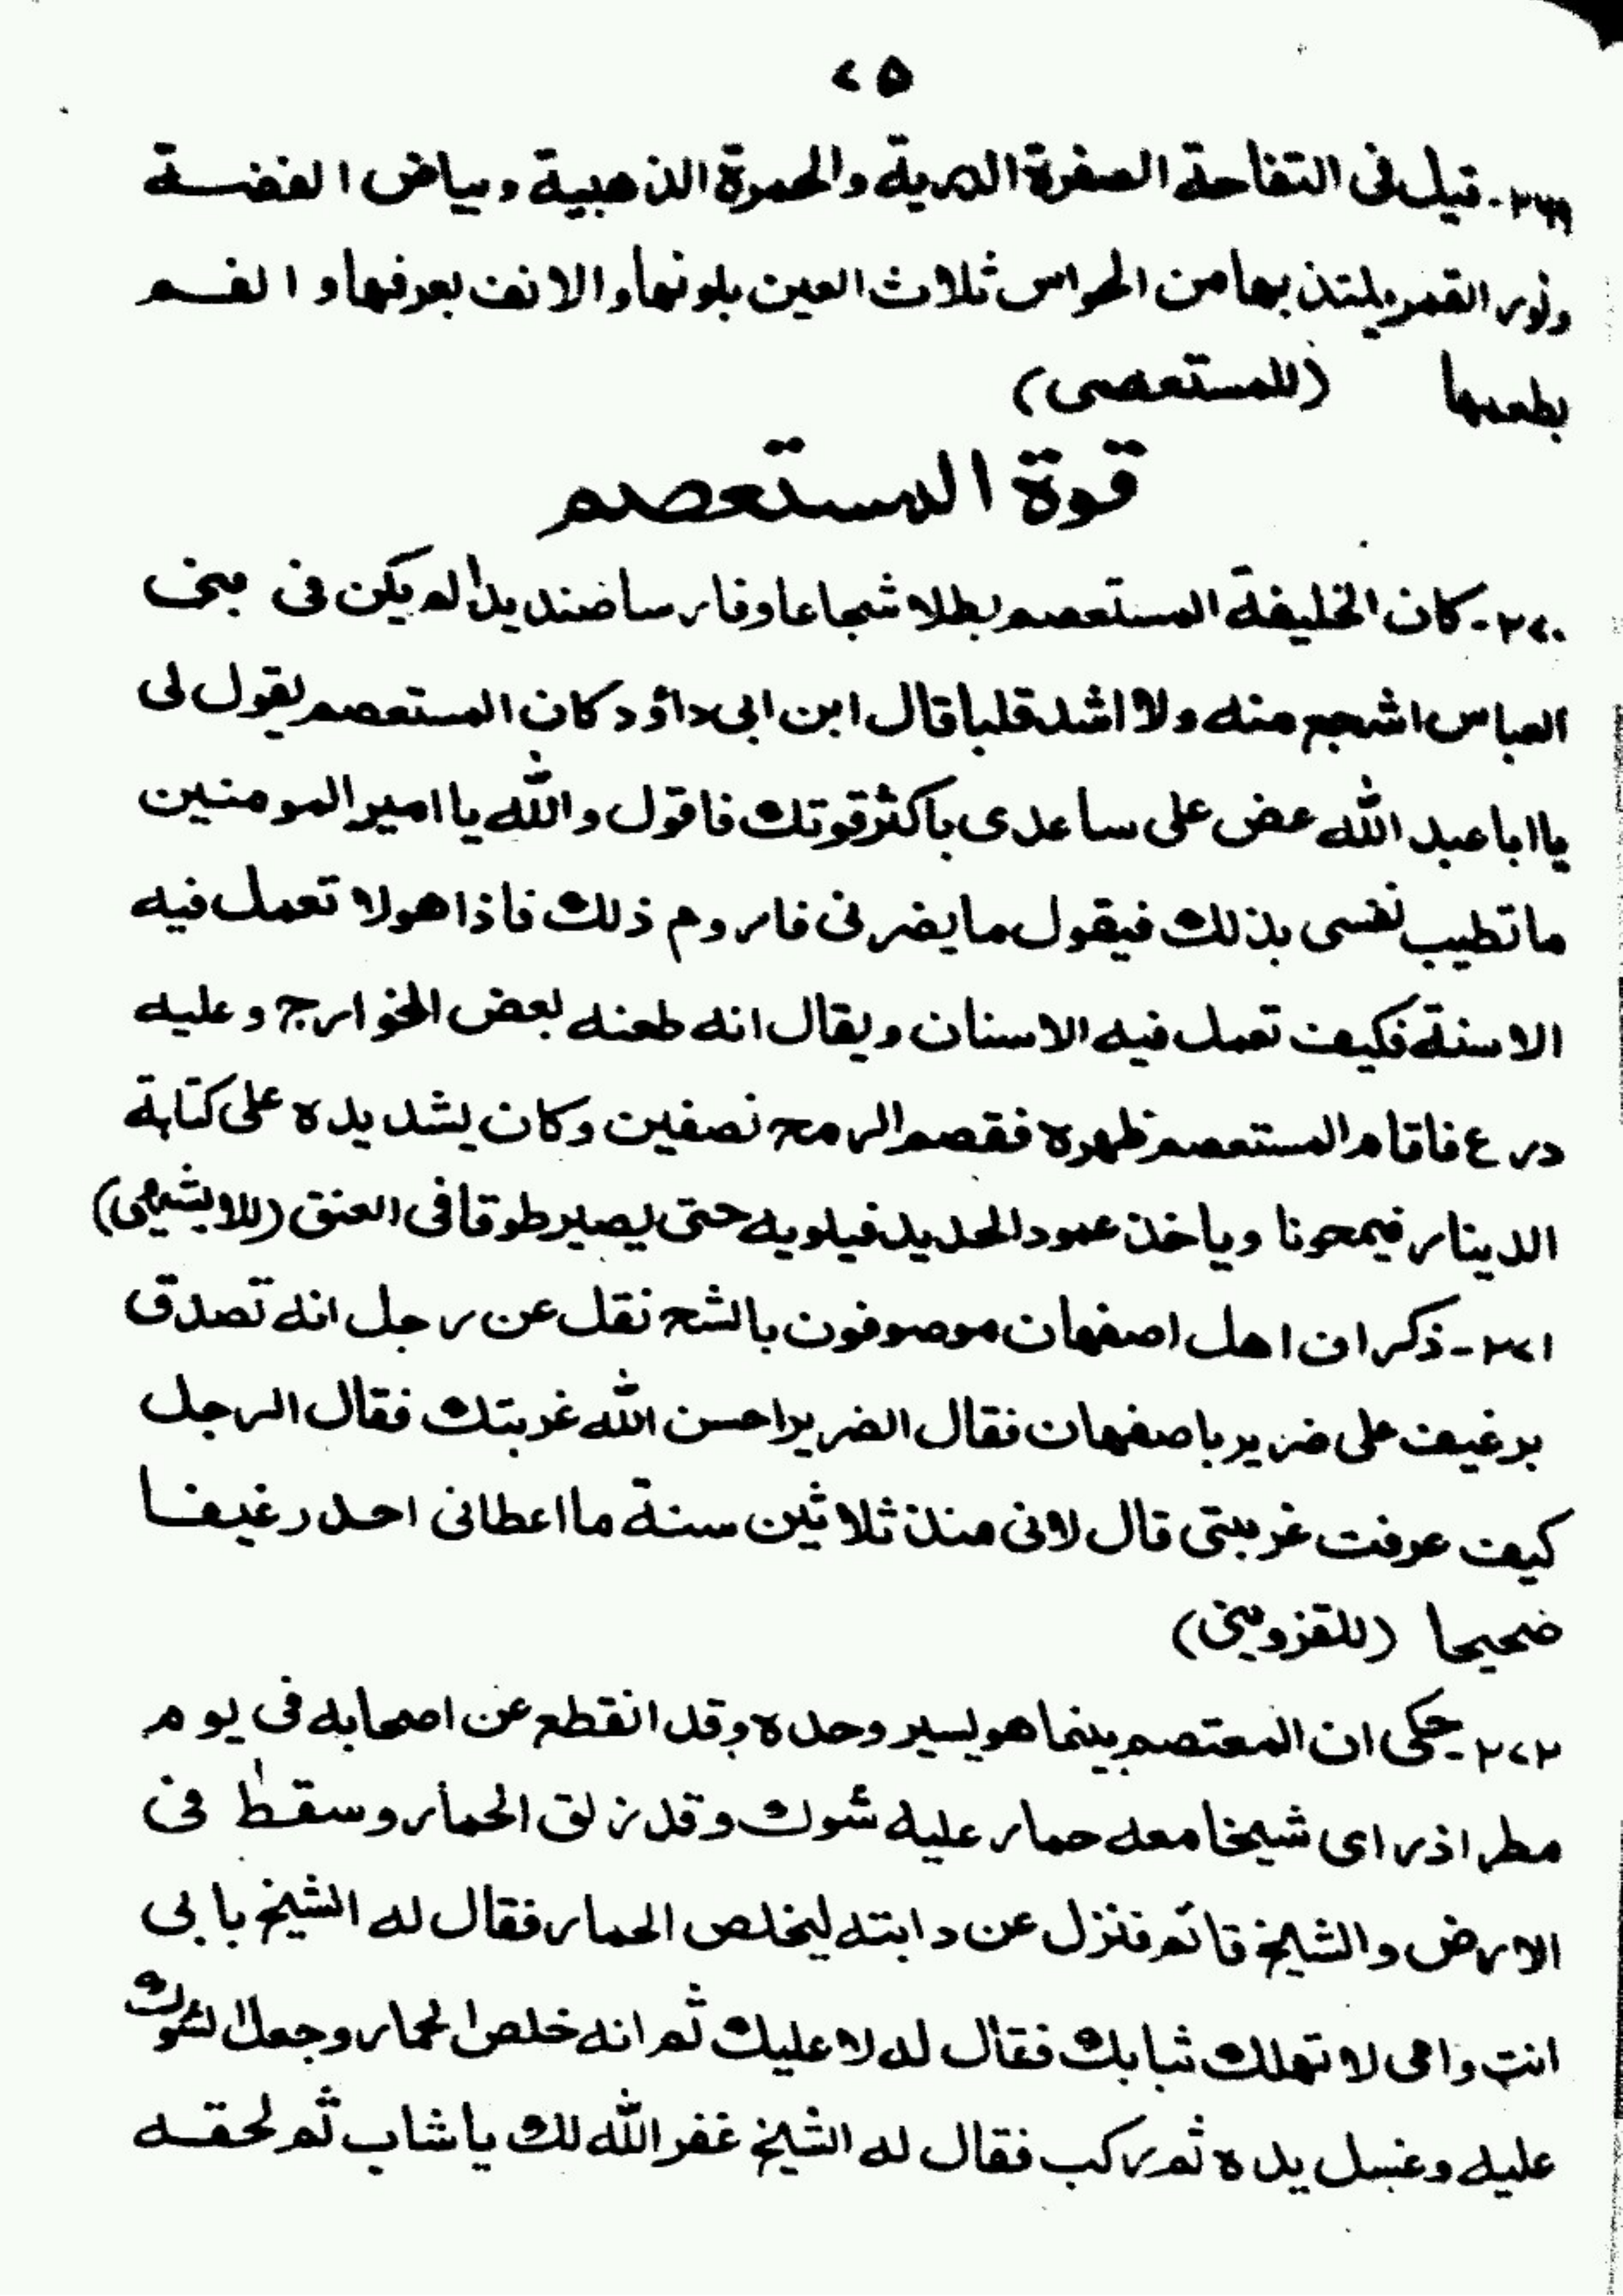 ٢٥
٢٦٩- قيل فى التفاحة الصفرة الدرية والحمرة الذهبية وبياض الفضسة
ونور القمر يلتذ بها من الحواس ثلاث العين بلونها والانف بعرفها و الفسم
بطعمها (للمستعصمى)
قوة المستعصم
٢٧٠- كان الخليفة المستعصم بطلا شجاعا وفارسا صنديدا لم يكن فى بنى
العباس اشجع منه ولا اشد قلبا قال ابن ابى داؤد كان المستعصم يقول لى
يا ابا عبد الله عض على ساعدى باكثر قوتك فاقول والله يا امير المومنين
ما تطيب نفسى بذلك فيقول ما يضرنى فاروم ذلك فاذا هو لا تعمل فيه
الاسنة فكيف تعمل فيه الاسنان ويقال انه طعنه بعض الخوارج وعليه
درع فاقام المستعصم ظهره فقصم الرمح نصفين وكان يشد يده على كتابة
الدينار فيمحونا وياخذ عمود الحديد فيلويه حتى يصير طوقا فى العنق (للابشيهى)
٢٧١- ذكر ان اهل اصفهان موصوفون بالشح نقل عن رجل انه تصدق
برغيف على ضرير باصفهان فقال الضرير احسن الله غربتك فقال الرجل
كيف عرفت غربتى قال لانى منذ ثلاثين سنة ما اعطانى احد رغيفا
ضحيحا (للقزوينى)
٢٧٢- حكى ان المعتصم بينما هو يسير وحده وقد انقطع عن اصحابه فى يوم
مطر اذ راى شيخا معه حمار عليه شوك وقد زلق الحمار وسقط فى
الارض والشيخ قائم فنزل عن دابته ليخلص الحمار فقال له الشيخ بابى
انت وامى لا تهلك ثيابك فقال له لا عليك ثم انه خلص الحمار وجعل الشوك
عليه وغسل يده ثم ركب فقال له الشيخ غفر الله لك يا شاب ثم لحقه